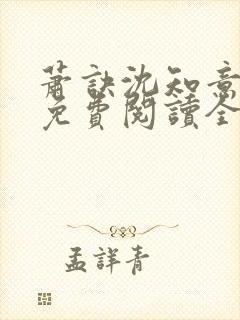 蕭訣沈知意
免費閱讀全
孟詳青